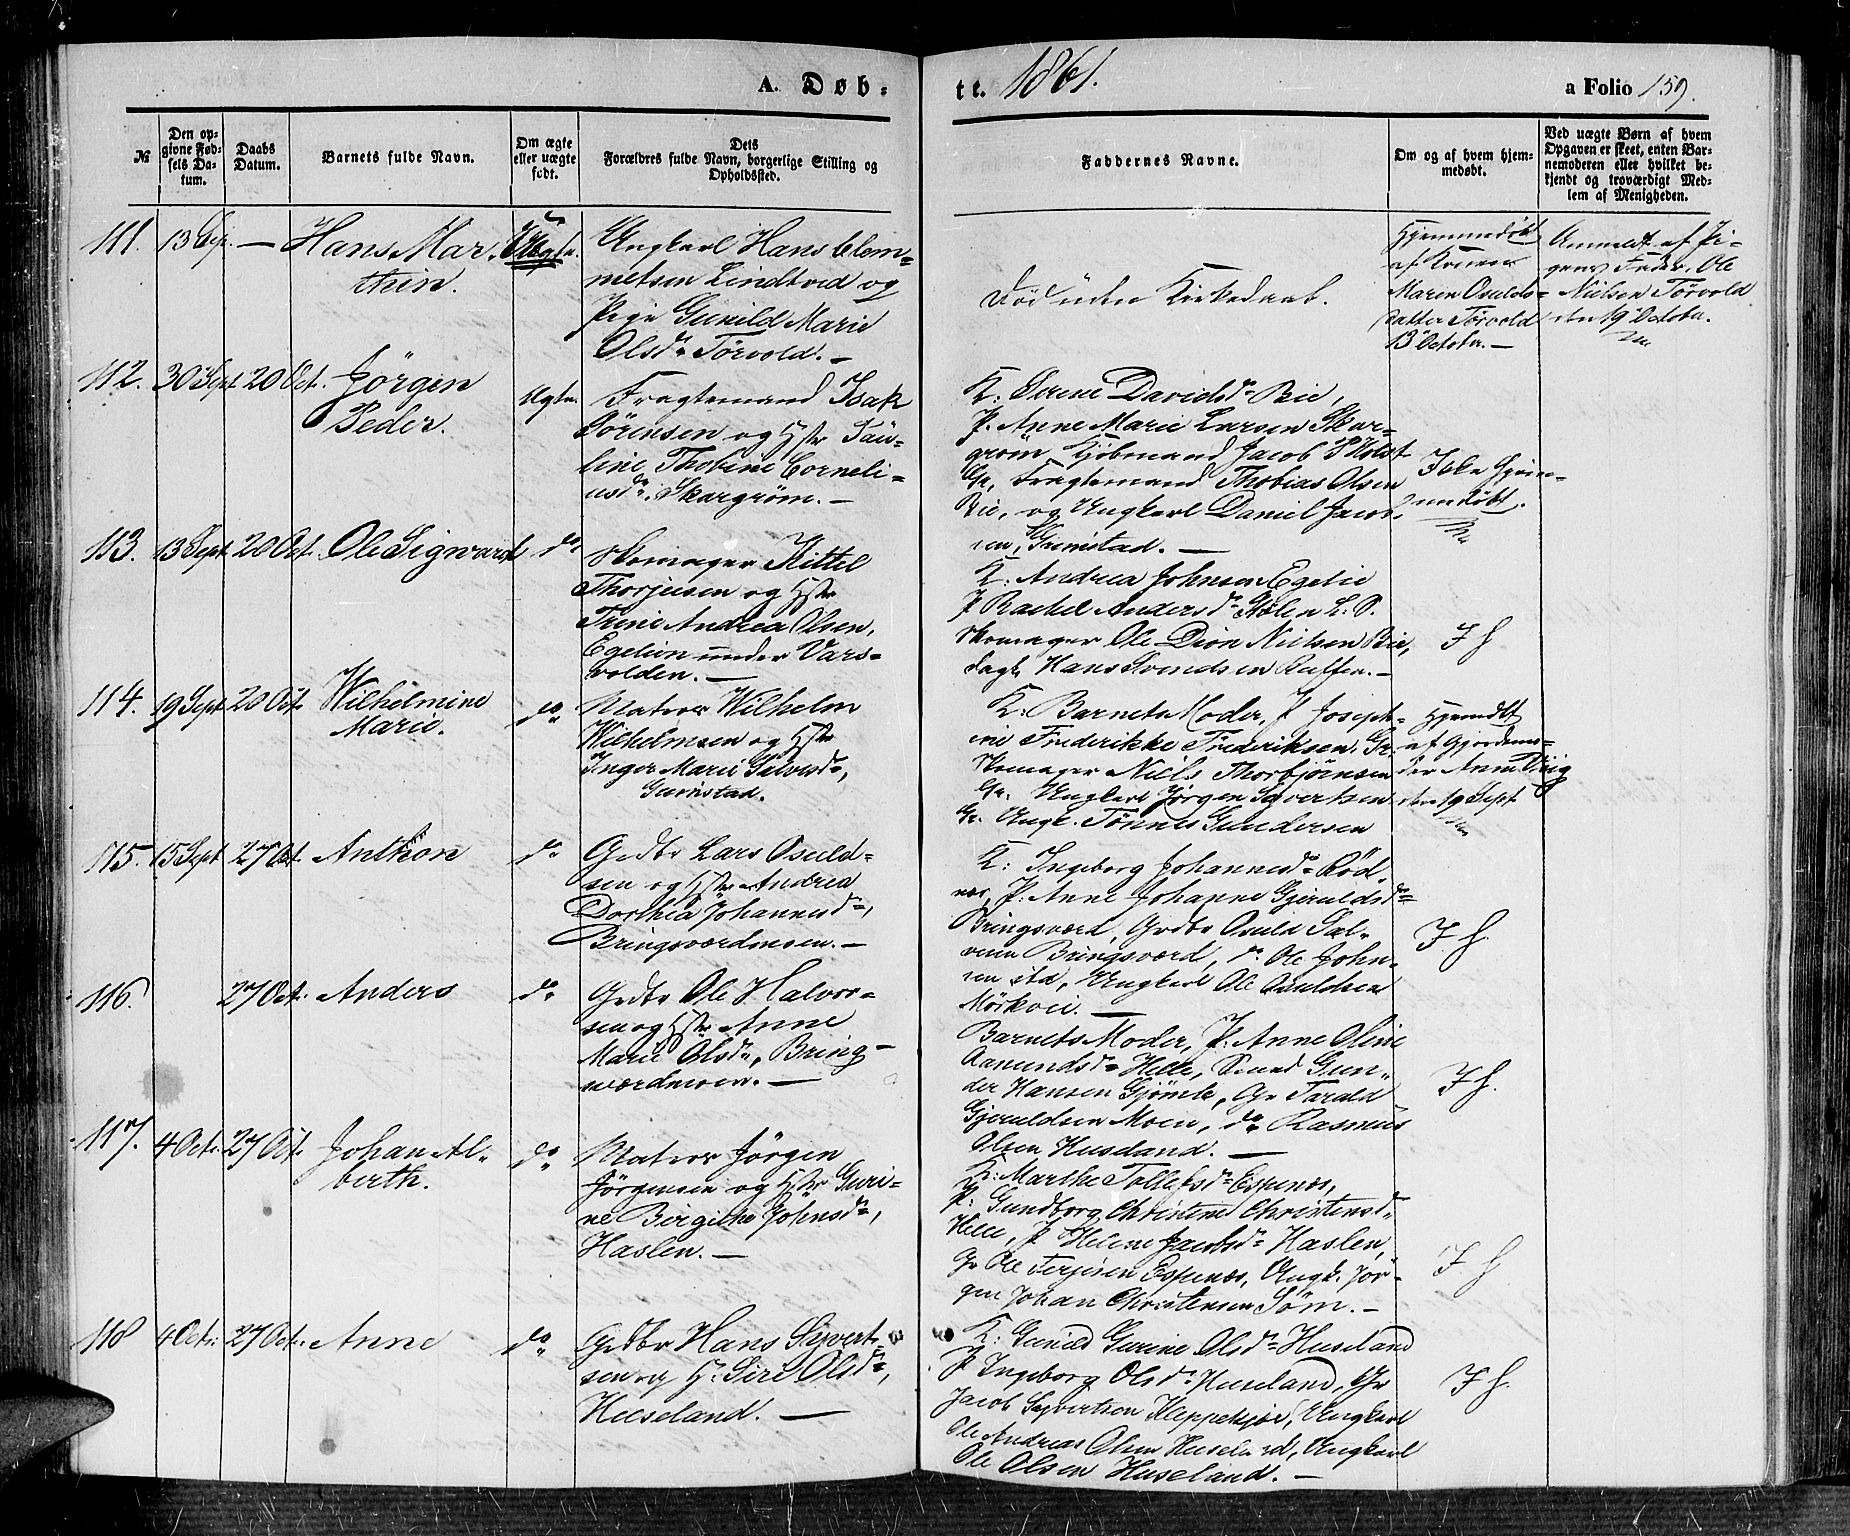 A. Døb-
tt. 1861.
a Folio 159.
№
Den op-
givne Fød-
sels Da-
tum.
Daabs
Datum.
Barnets fulde Navn.
Om ægte
eller uægte
født.
Dets
Forældres fulde Navn, borgerlige Stilling og
Opholdssted.
Faddernes Navne.
Om og af hvem hjem-
medøbt.
Ved uægte Børn af hvem
Opgaven er skeet, enten Bar-
nemoderen eller hvilket be-
kjendt og troværdigt Med-
lem af Menigheden.
111. 13 Sep. — Hans Mar-
thin.
Uægte.
Ungkarl Hans Clem-
metsen Lindtved og
Pige Gunild Marie
Olsd. Törvold. —
Död uden Kirkedaab.
Hjemmedöbt
af Konen
Maren Osulds-
datter Törvold
13 October. —
Anmeldt af Pi-
gens Fader, Ole
Nielsen Törvold
den 19 October.
112. 30 Sept. 20 Oct. Jörgen
Peder.
Ægte.
Fragtemand Isak
Sörensen og Hstr Pau-
line Thobine Corneli-
usd. Skargröm. —
K: Serene Davidsd. Bie,
P. Anne Marie Larsen Skar-
gröm Kjöbmand Jacob P Holst
Gr, Fragtemand Thobias Olsen
Bie, og Ungkarl Daniel Jacob-
sen, Grimstad. —
Ikke Hjem-
medöbt.
113. 13 Sept. 20 Oct. Ole Sigward
do
Skomager Kittel
Thorjusen og Hstr
Trine Andrea Olsen,
Egelien under Vars-
volden. —
K: Andrea Johnsen Egelie
P Rachel Andersd. Stölen L. S.
Skomager Ole Dion Nielsen Bie,
Dagl. Hans Svendsen
I H
114. 19 Sept 20 Oct. Wilhelmine
Marie.
do
Matros Wilhelm
Wilhelmsen og Hstr
Inger Marie Salvesd.,
Grimstad.
K: Barnets Moder, P Joseph-
ine Frederikke Frederiksen. Gr.
Skomager Niels Thorbjörnsen
Gr. Ungkarl Jörgen Syvertsen
Gr. Ungk. Tönnes Gundersen
Hjemdbt
af Gjordemo-
der Anne
den 19 Sept
115. 15 Sept 27 Oct. Anthon
do
Grdbr Lars Osuld-
sen og Hstr Andrea
Dorthea Johannesd.,
Bringsværdmoen. —
K: Ingeborg Johannesd. Röd-
nes, P. Anne Johanne Gjeruldsd.
Bringsværd, Grdbr Osuld Sal-
vesen Bringsværd, do Ole John-
sen std, Ungkarl Ole Osuldsen
Mörkvei. —
I H.
116. 27 Oct. Anders
do
Grdbr Ole Halvor-
sen og Hstr Anne
Marie Olsd., Bring-
værdmoen. —
Barnets Moder, P. Anne Oline
Aanundsd. Helle, Smed Gun-
der Hansen Gjömle, Gr Tarald
Gjeruldsen Moen, do Rasmus
Olsen Huseland. —
I H.
117. 4 Oct. 27 Oct. Johan Al-
berth.
do
Matros Jörgen
Jörgensen og Hstr Guri-
ne Birgithe Johnsd.,
Haslen. —
K: Marthe Tollefsd. Espenes,
P. Gundborg Christine Christensd.
Helle, P Helene Jacobsd. Haslen,
Gr Ole Terjesen Espenes, Ungk. Jör-
gen Johan Christensen Söm. —
I H
118 4 Oct. 27 Oct. Anne
do
Grdbr Hans Syvert-
sen og H. Siri Olsd.,
Huseland. —
K: Gunild Gurine Olsd. Huseland
P Ingeborg Olsd. Huseland, Gr
Jacob Syvertsen Kleppekjær, Ungkarl
Ole Andreas Olsen Huseland, Ungkarl
Ole Olsen Huseland. —
I H.